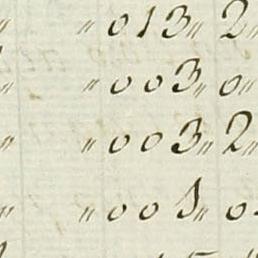 " " 013 " 2 "
" " 003 " 0 "
" " 003 " 2 "
" " 001 " 0